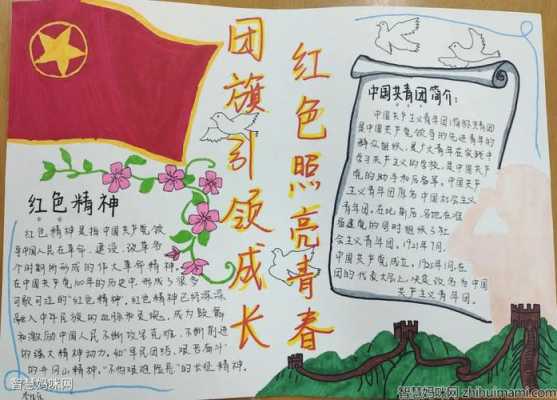 团旗引领成长
红色照亮青春
红色精神
红色精神是指中国共产党领
导中国人民在革命、建设、改革各
个时期所形成的伟大革命精神。
在中国共产党100年的历史中,形成了很多
可歌可泣的"红色精神",红色精神已经深深
融入中华民族的血脉和灵魂,成为鼓舞
和激励中国人民不断攻坚克难、不断前进
的强大精神动力。如"军民团结、艰苦奋斗"
的井冈山精神,"不怕艰难险恶"的长征精神。
中国共青团简介:
中国共产主义青年团(简称共青团)
是中国共产党领导的先进青年的
群众组织,是广大青年在实践中
学习共产主义的学校,是中国共产
党的助手和后备军。中国共产
主义青年团原名中国社会主义
青年团,在此期后,各地在准
备建党的同时组织了社
会主义青年团。1921年7月,
中国共产党成立,1925年1月,在
团的代表大会上,决定改名为中国
共产主义青年团。
智慧妈咪网
智慧妈咪网zhihuimami.com